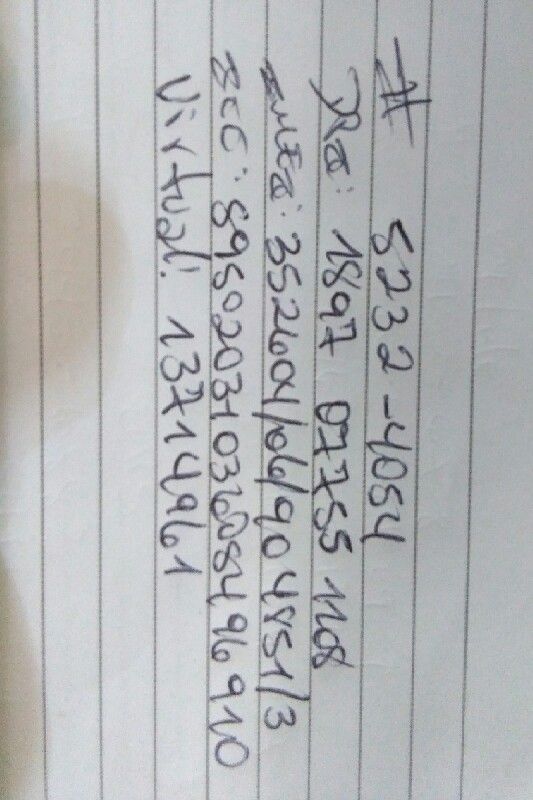 # 5232-4054
DPI: 1897 07755 1108
IMEI: 352604/06/904851/3
ICC: 8950203103608496910
Virtual: 13714961